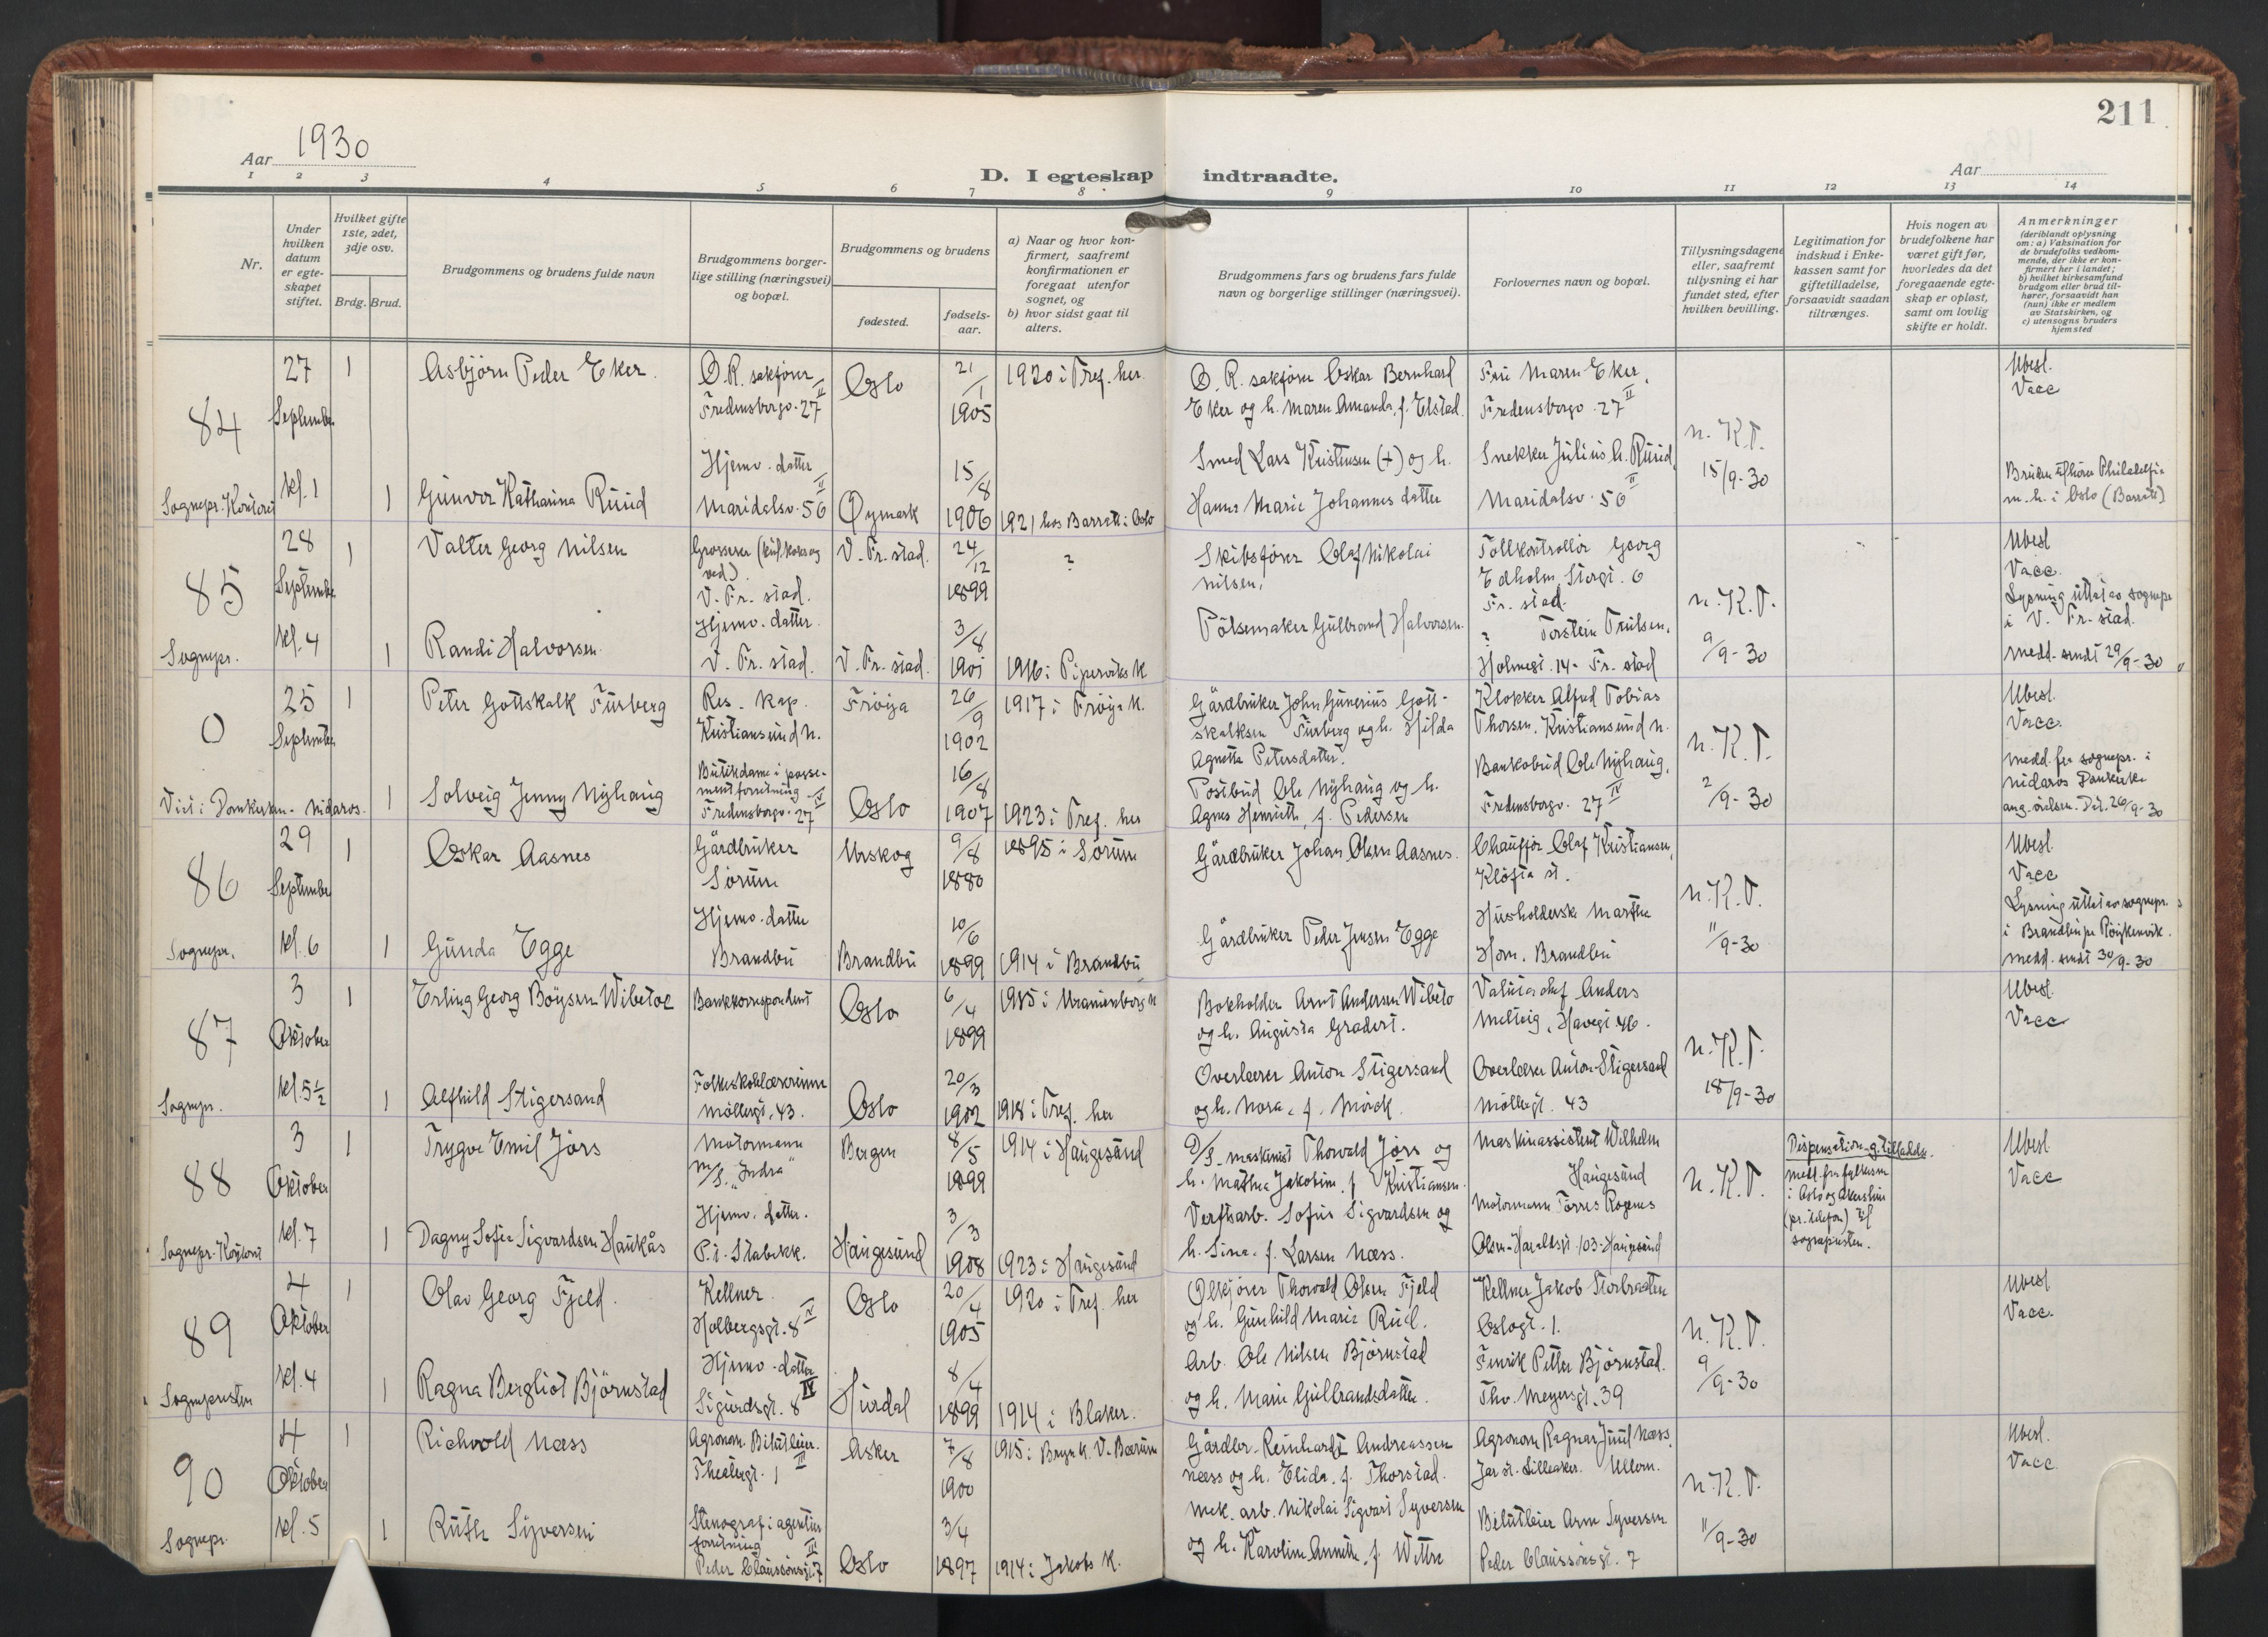 211
Aar 1930
Aar
D. I egteskap indtraadte.
1 2 3 4 5 6 7 8 9 10 11 12 13 14
Nr.
Under hvilken datum er egte-skapet stiftet.
Hvilket gifte 1ste, 2det, 3dje osv.
Brdg. Brud.
Brudgommens og brudens fulde navn
Brudgommens borger-lige stilling (næringsvei) og bopæl.
Brudgommens og brudens
fødested.
fødsels-aar.
a) Naar og hvor kon-firmert, saafremt konfirmationen er foregaat utenfor sognet, og
b) hvor sidst gaat til alters.
Brudgommens fars og brudens fars fulde navn og borgerlige stillinger (næringsvei).
Forlovernes navn og bopæl.
Tillysningsdagene eller, saafremt tillysning ei har fundet sted, efter hvilken bevilling.
Legitimation for indskud i Enke-kassen samt for giftetilladelse, forsaavidt saadan tiltrænges.
Hvis nogen av brudefolkene har været gift før, hvorledes da det foregaaende egte-skap er opløst, samt om lovlig skifte er holdt.
Anmerkninger (deriblandt oplysning om: a) Vaksination for de brudefolks vedkom-mende, der ikke er kon-firmert her i landet; b) hvilket kirkesamfund brudgom eller brud til-hører, forsaavidt han (hun) ikke er medlem av Statskirken, og c) utensogns bruders hjemsted
84 27 September kl. 1 Sognepr. Kontoret
1 Asbjörn Peder Eker. O.R. sakfører Fredensborgv. 27 II Oslo 21/1 1905 1920 i Tref. her. O. R. sakfører Oskar Bernhard Eker og h. Maren Amanda, f. Elstad. Frü Maren Eker, Fredensborgv. 27 II Ubesl. Vacc
1 Günvor Katharina Rüüd Hjemv. datter Maridalsv. 56 II Øymark 15/8 1906 1921 hos Barratt i Oslo Smed Lars Kristensen (+) og h. Hanna Marie Johannesdatter Snekker Jülius A. Rüüd, Maridalsv. 56 II n. K.T. 15/9-30 Bruden tilhører Philadelfia m.h. i Oslo (Barratt)
85 28 September kl. 4 Sognepr.
1 Valter Georg Nilsen Grosserer (kül, koks og ved). V. Fr.stad. V. Fr.stad. 24/12 1899 ? Skibsfører Olaf Nikolai Nilsen. Tollkontrollör Georg Edholm, Storgt. 6 Fr.stad. n. K.T. Ubesl Vacc. Lysning üttat av sognepr i V. Fr.stad.
1 Randi Halvorsen Hjemv. datter. V. Fr.stad. V. Fr.stad. 3/8 1901 1916 i Pipervikens K Pölsemaker Gülbrand Halvorsen. ? Torstein Trülsen, Holmegt. 14. Fr.stad 9/9-30 Medd. sendt 29/9-30
0 25 September Viet i Domkirken - Nidaros.
1 Peter Gottskalk Fürberg Res. kap. Kristiansünd N. Frøya 26/9 1902 1917 i Frøya K. Gårdbrüker John Günerius Gott-skalksen Fürberg og h. Hilda Agnetha Petersdatter. Klokker Alfred Tobias Thorsen, Kristiansünd N. n. K.T. Ubesl. Vacc.
1 Solveig Jenny Nyhaüg Bütikdame i posse-mentforretning Fredensborgv. 27 IV Oslo 16/8 1907 1923 i Tref. her Postbüd Ole Nyhaüg og h. Agnes Henriette, f. Pedersen Bankobüd Ole Nyhaüg, Fredensborgv. 27 IV 2/9-30 Medd. fra sognepr. i Nidaros Domkirke ang. vielsen. Dat. 26/9-30
86 29 September kl. 6 Sognepr.
1 Oskar Aasnes Gårdbrüker Sørüm Urskog 9/8 1880 1895 i Sørüm Gårdbrüker Johan Olsen Aasnes. Chaüffør Olaf Kristiansen, Kløfta st. n. K.T. Ubesl. Vacc Lysning üttat av sognepr. i Brandbü pr Röykenvik.
1 Günda Egge Hjemv. datter Brandbü Brandbü 10/6 1899 1914 i Brandbü Gårdbrüker Peder Jensen Egge Hüsholderske Marthe Horn, Brandbü 11/9-30 Medd. sendt 30/9-30
87 3 Oktober kl. 5½ Sognepr.
1 Erling Georg Böysen Wibetoe Bankkorrespondent Oslo 6/4 1899 1915 i Uranienborg K Bokholder Arnt Andersen Wibeto og h. Augüsta Gradert. Valütasjef Anders Melteig, Havegt. 46. n. K.T. Ubesl. Vacc
1 Alfhild Stigersand Folkeskolelærerinne Möllergt. 43. Oslo 20/3 1902 1918 i Tref. her Overlærer Anton Stigersand og h. Nora, f. Mörck. Overlærer Anton Stigersand Möllergt. 43 18/9-30
88 3 Oktober kl. 7 Sognepr. Kontoret
1 Trygve Emil Jörs Motormann M/S. "Indra" Bergen 8/5 1899 1914 i Haügesünd D/S-maskinist Thorvald Jörs og h. Mathea Jakobine, f Kristiansen. Maskinassistent Wilhelm Haügesünd n. K.T. Dispensation g. tilladelse. medd. fra fylkesm i Oslo og Akershüs (pr. telefon) Ubesl Vacc
1 Dagny Sofie Sigvardsen Haükås Hjemv. datter. P.t. Stabekk. Haügesünd 3/3 1908 1923 i Haügesünd Verftsarb. Sofüs Sigvardsen og h. Sina, f. Larsen Næss. Motormann Törres Rogenes Olsen-Haraldsgt. 103-Haügesünd
89 4 Oktober kl. 4 Sognepresten
1 Olav Georg Fjeld. Kellner. Holbergsgt. 8 IV Oslo 20/4 1905 1920 i Tref. her Ølkjører Thorvald Olsen Fjeld og h. Günhild Marie Rüd. Kellner Jakob Storbraaten Oslogt. 1. n. K.T. Ubesl Vacc.
1 Ragna Bergliot Björnstad Hjemv. datter Sigürdsgt. 8 IV Hürdal 8/4 1899 1914 i Blaker. Arb. Ole Nilsen Björnstad og h. Marie Gülbrandsdatter. Fenrik Petter Björnstad. Thv. Meyersgt. 39 9/9-30
90 4 Oktober kl. 5 Sognepr.
1 Richvold Næss Agronom. Bilütleier. Theatergt. 1 III Asker 7/8 1900 1915 i Bryn K. V. Bærüm Gårdbr. Reinhardt Andreassen Næss og h. Elida, f. Thorstad. Agronom Ragnar Jüül Næss, Jar st. Lilleaker. Ullern. n. K.T. Ubesl. Vacc.
1 Rüth Syversen Stenograf i agentür forretning Peder Claüssönsgt. 7 III Oslo 3/4 1897 1914 i Jakobs K. Mek. arb. Nikolai Sigvart Syversen og h. Karoline Annette, f. Wettre Bilütleier Arne Syversen Peder Claüssönsgt. 7 11/9-30